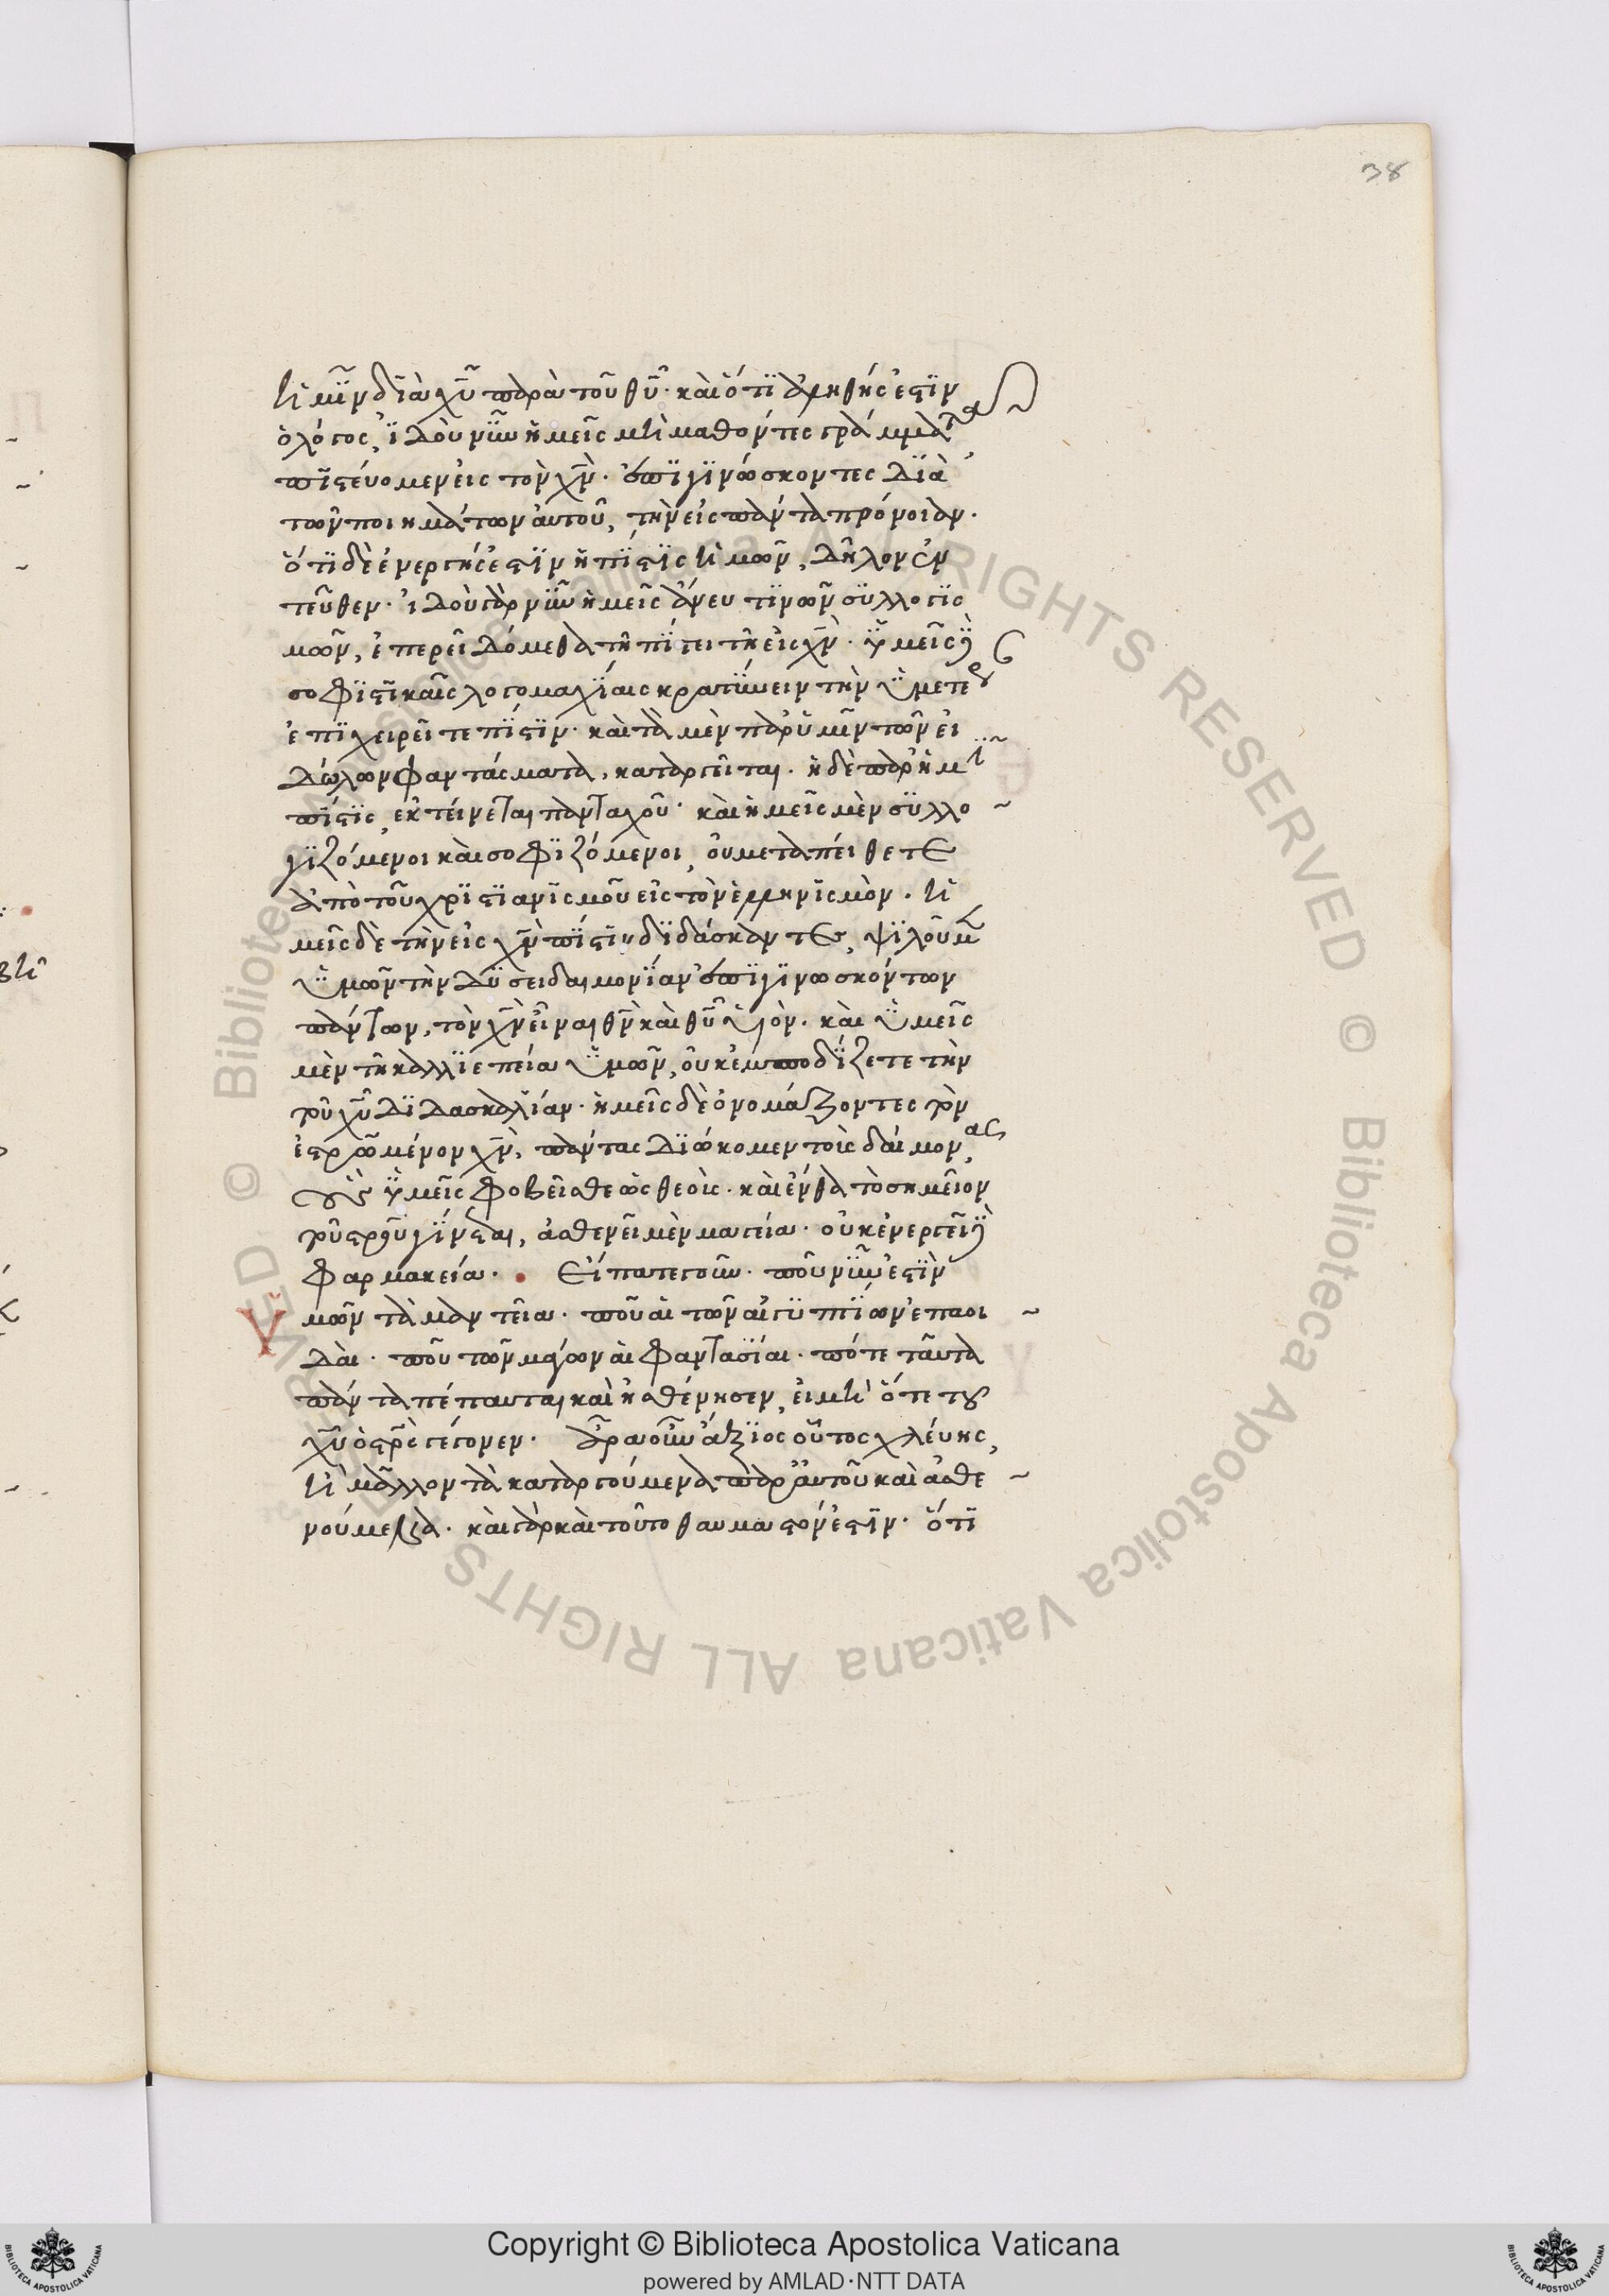 38
ἡμῖν διὰ χῦ παρὰ τοῦ θῦ· καὶ ὅτι ἀληθής ἐστιν
ὁ λόγος, ἰδοὺ νῦν ἡμεῖς μὴ μαθόντες γράμματα
πιστεύομεν εἰς τὸν χν· ἐπιγινώσκοντες διὰ
τῶν ποιημάτων αὐτοῦ, τὴν εἰς πάντα πρόνοιαν.
ὅτι δὲ ἐνεργής ἐστιν ἡ πίστις ἡμῶν, δῆλον ἐν
τεῦθεν· ἰδοὺ γὰρ νῦν ἡμεῖς ἄνευ τινῶν συλλογις
μῶν, ἐπερειδόμεθα τῆ πίστει τῆ εἰς χν· ὑμεῖς δὲ
σοφιστικαῖς λογομαχίαις κρατύνειν τὴν ὑμετέραν
ἐπιχειρεῖτε πίστιν· καὶ τὰ μὲν παρ' ὑμῖν τῶν εἰ
δώλων φαντάσματα, καταργεῖται. ἡ δὲ παρ' ἡμῖν
πίστις, ἐκτείνεται πανταχοῦ· καὶ ἡμεῖς μὲν συλλο
γιζόμενοι καὶ σοφιζόμενοι, οὐ μεταπείθετε
ἀπὸ τοῦ χριστιανισμοῦ εἰς τὸν ἑλληνισμὸν. ἡ
μεῖς δὲ τὴν εἰς χν πίστιν διδάσκοντες, ψιλοῦμεν
ὑμῶν τὴν δυσειδαιμονίαν ἐπιγινωσκόντων
πάντων, τὸν χν εἶναι θν καὶ θῦ υἱὸν. καὶ ὑμεῖς
μὲν τῆ καλλιεπεία ὑμῶν, οὐκ ἐμποδίζετε τὴν
τοῦ χῦ διδασκαλίαν· ἡμεῖς δὲ ὀνομάζοντες τὸν
ἐστρωμένον χν, πάντας διώκομεν τοὺς δαίμονας,
οὓς ὑμεῖς φοβεῖσθε ὡς θεοὺς. καὶ ἔνθα τὸ σημεῖον
τοῦ στρου γίνεται, ἀσθενεῖ μὲν μαγεία· οὐκ ἐνεργεῖ δὲ
φαρμακεία. Εἴπατε γοῦν. ποῦ νῦν ἐστιν
ὑμῶν τὰ μαντεῖα· ποῦ αἱ τῶν αἰγυπτίων ἐπαοι
δαὶ. ποῦ τῶν μάγων αἱ φαντασίαι. πότε ταῦτα
πάντα πέπαυται καὶ ἠσθένησεν, εἰ μὴ ὅτε τοῦ
χῦ ὁ στρὸς γέγονεν. ἆρα οὖν ἄξιος οὗτος χλεύης,
ἢ μᾶλλον τὰ καταργούμενα παρ' αὐτοῦ καὶ ἀσθε
νούμενα. καὶ γὰρ καὶ τοῦτο θαυμαστόν ἐστιν. ὅτι
Copyright © Biblioteca Apostolica Vaticana
powered by AMLAD·NTT DATA